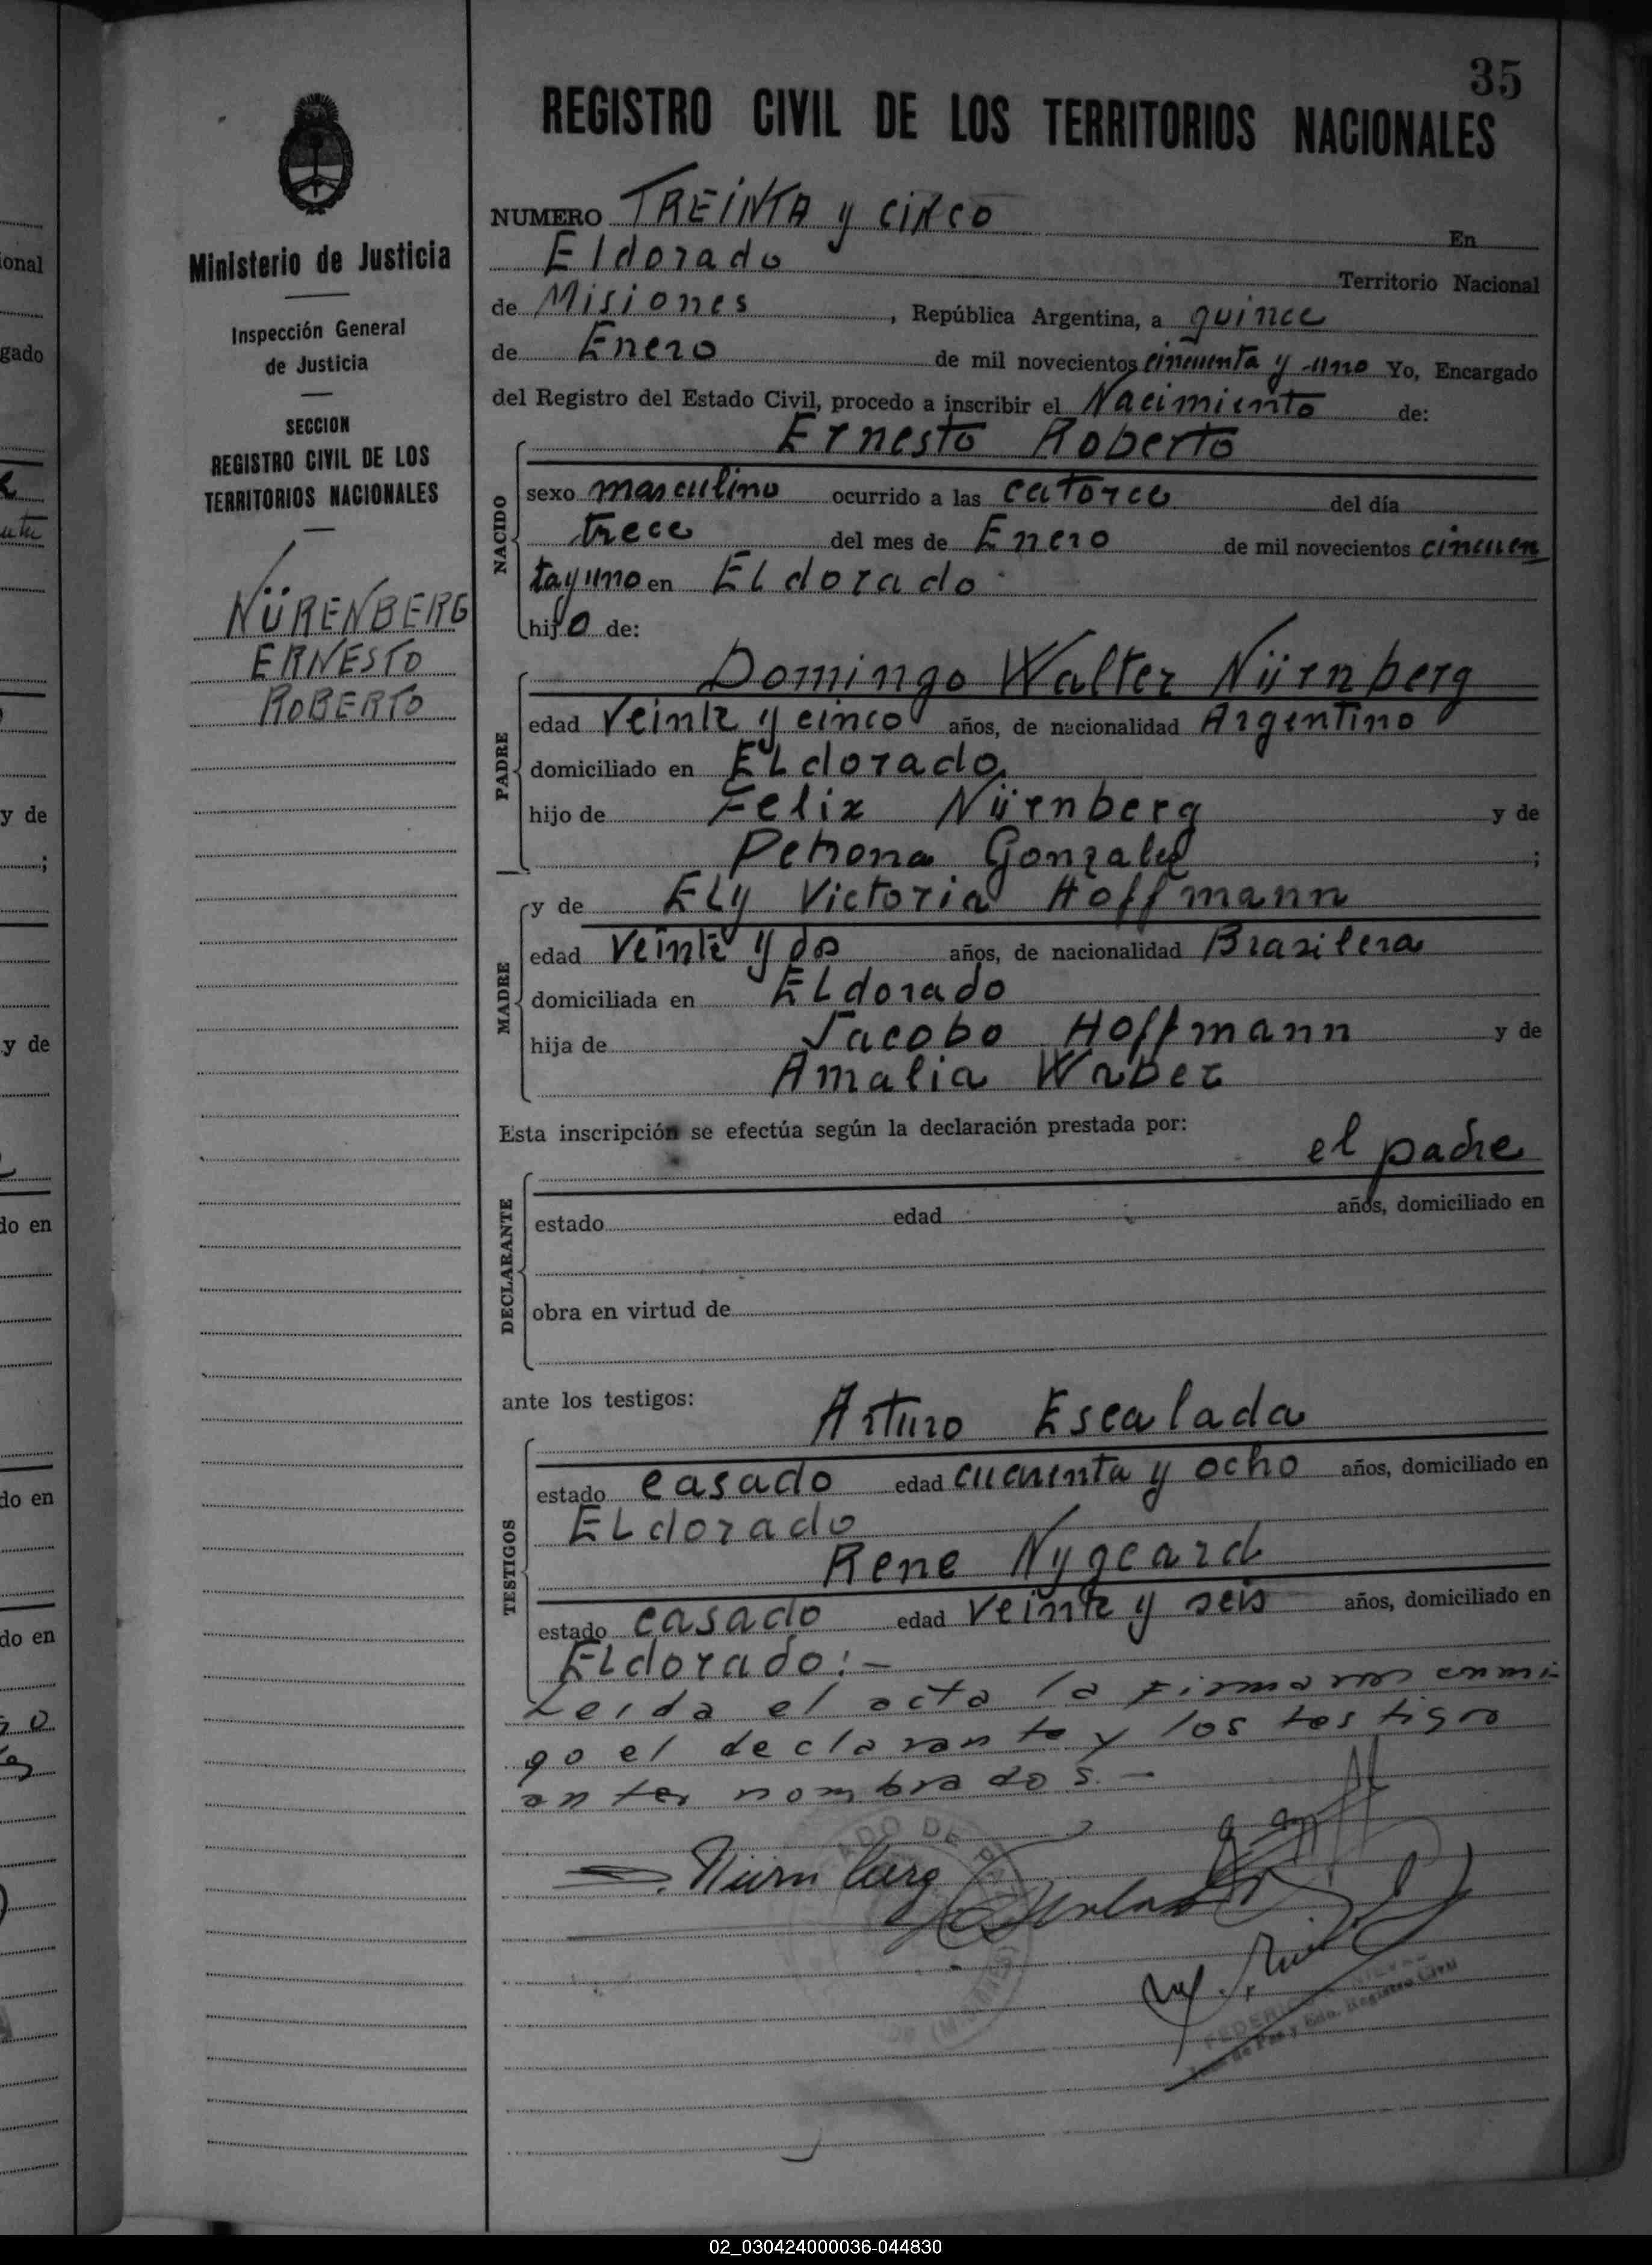 35
REGISTRO CIVIL DE LOS TERRITORIOS NACIONALES
Ministerio de Justicia
Inspección General
de Justicia
SECCION
REGISTRO CIVIL DE LOS
TERRITORIOS NACIONALES
NÜRENBERG
ERNESTO
ROBERTO
NUMERO TREINTA y CINCO En
Eldorado Territorio Nacional
de Misiones, República Argentina, a quince
de Enero de mil novecientos cincuenta y uno Yo, Encargado
del Registro del Estado Civil, procedo a inscribir el Nacimiento de:
NACIDO
Ernesto Roberto
sexo masculino ocurrido a las catorce del día
trece del mes de Enero de mil novecientos cincuen
ta y uno en ELdorado
hijo de:
PADRE
Domingo Walter Nürnberg
edad veinte y cinco años, de nacionalidad Argentino
domiciliado en ELdorado
hijo de Felix Nürnberg y de
Petrona Gonzalez ;
MADRE
y de Ely Victoria Hoffmann
edad veinte y dos años, de nacionalidad Brasilera
domiciliada en ELdorado
hija de Jacobo Hoffmann y de
Amalia Weber
Esta inscripción se efectúa según la declaración prestada por:
el padre
DECLARANTE
estado edad años, domiciliado en
obra en virtud de
ante los testigos:
TESTIGOS
Arturo Escalada
estado casado edad cuarenta y ocho años, domiciliado en
ELdorado
Rene Nygeard
estado casado edad veinte y seis años, domiciliado en
ELdorado:-
Leida el acta la firmaron conmi-
go el declarante y los testigos
antes nombrados.-
D. Nürnberg
Juez de Paz y Edo. Registro Civil
02_030424000036-044830